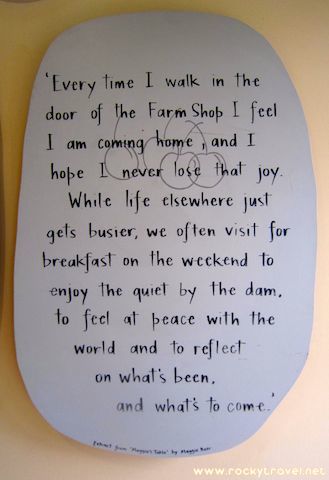 'Every time I walk in the
door of the Farm Shop I feel
I am coming home, and I
hope I never lose that joy.
While life elsewhere just
gets busier, we often visit for
breakfast on the weekend to
enjoy the quiet by the dam,
to feel at peace with the
world and to reflect
on what's been,
and what's to come.'
Extract from 'Maggie's Table' by Maggie Beer.
www.rockytravel.net